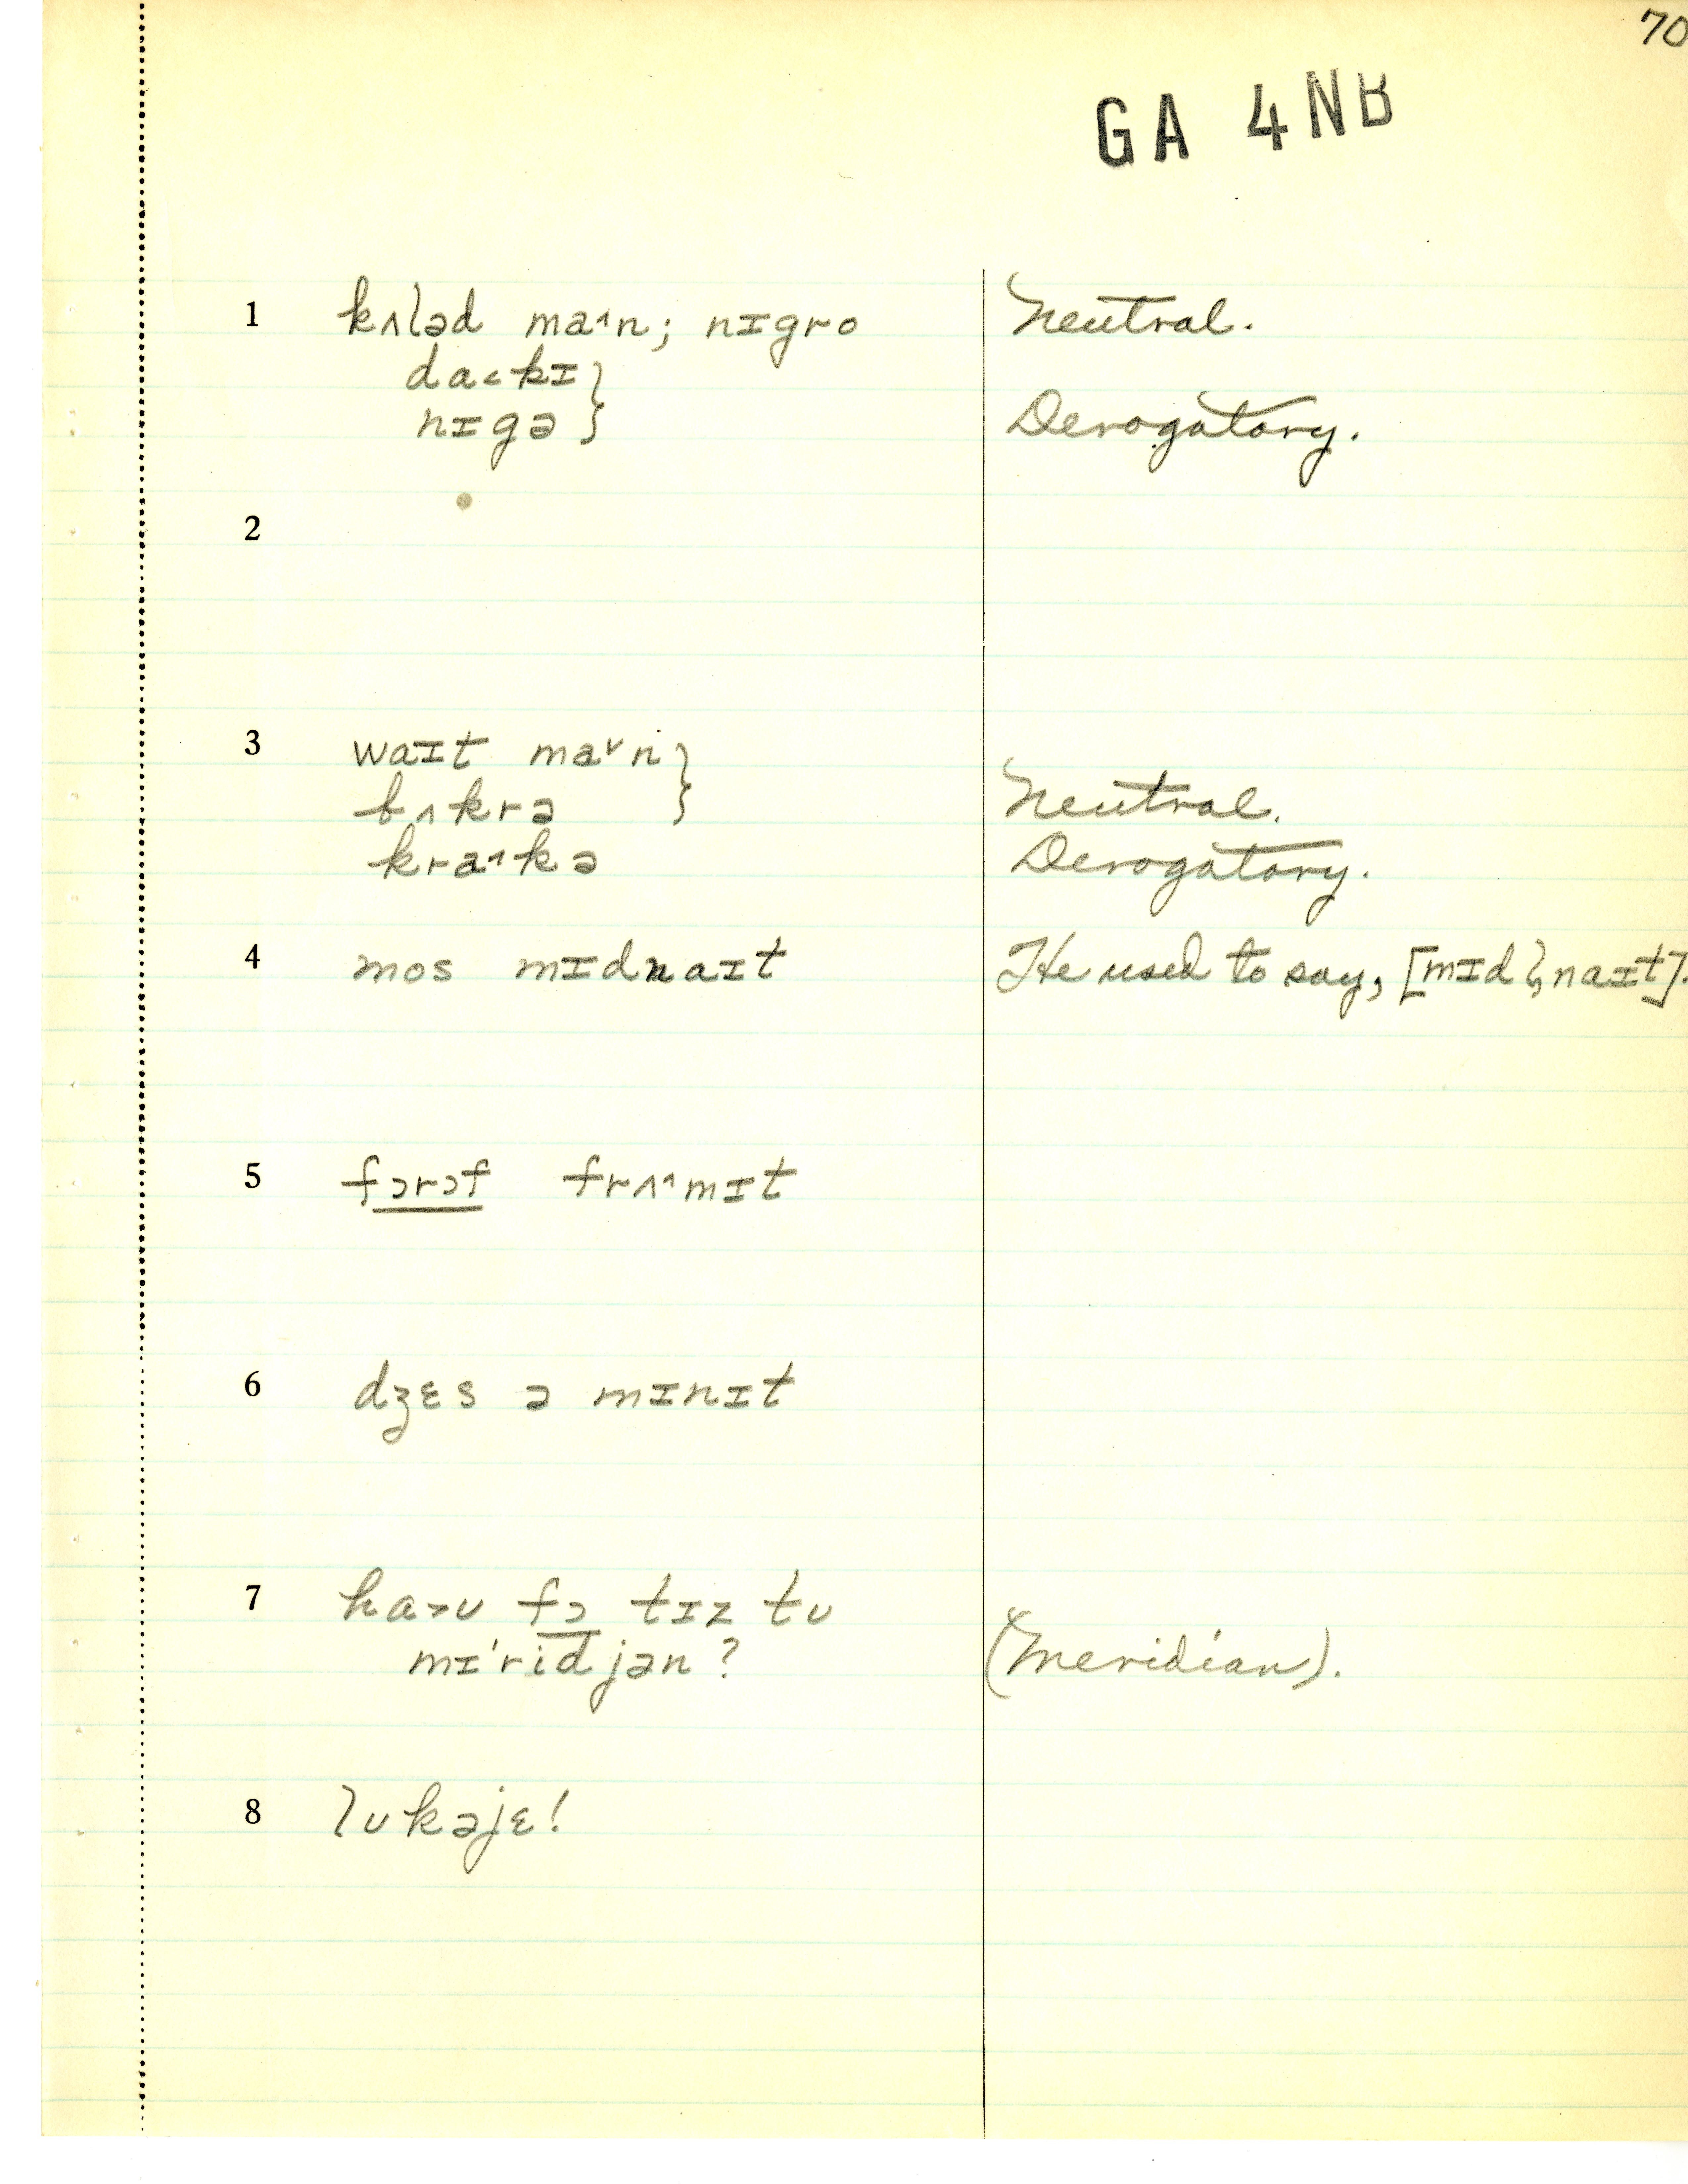 70
GA 4NB
1 kʌləd ma˄n; nɪgro Neutral.
da˂kɪ }
nɪgə } Derogatory.
2
3 waɪt ma˅n }
bʌkrə } Neutral.
kra˄kə Derogatory.
4 mos mɪdnaɪt He used to say, [mɪdl̩naɪt].
5 fɔrɔf frʌ˄mɪt
6 dʒɛs ə mɪnɪt
7 ha˃ʊ fɔ tɪz tʊ
mɪ'ridjən? (Merídian).
8 lʊkəjɛ!